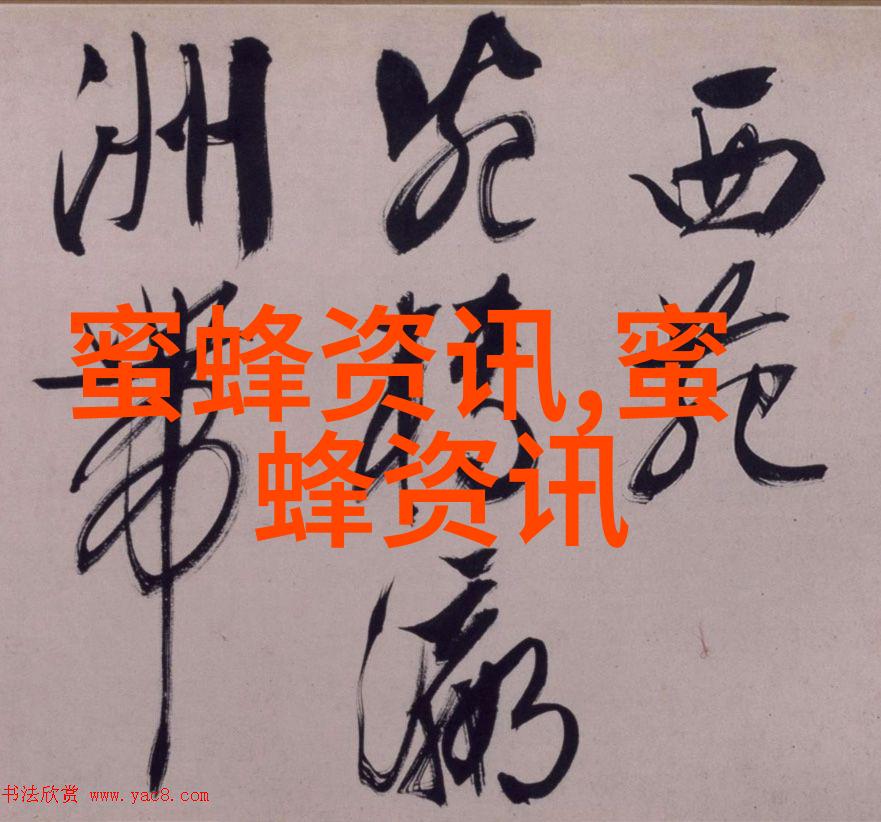 西苑
瀛
洲帶
蜜蜂资讯,蜜
蜂资讯
书法欣赏 www.yac8.com